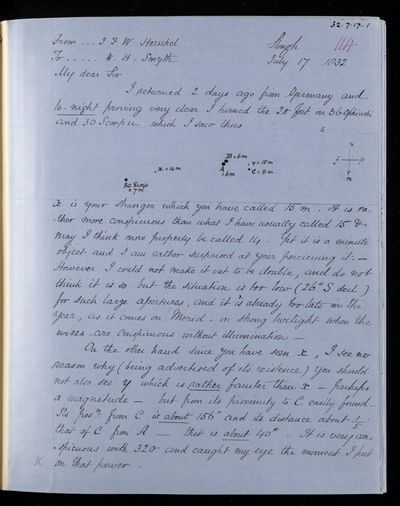 32.7.17.1
From ... J F W Herschel
Slough 11A
To ..... W. H. Smyth
July 17 1832
My dear Sir
I returned 2 days ago from Germany and
to-night proving very clear I turned the 20 feet on 36 Ophiuchi
and 30 Scorpii which I saw thus
S
x = 14 m
B = 6 m
A
6 m
y = 15 m
C = 8 m
30 Scorpii
= 7 m
x is your stranger which you have called 15 m. It is ra-
ther more conspicuous than what I have usually called 15 &
may I think more properly be called 14. Yet it is a minute
object and I am rather surprised at your perceiving it. —
However I could not make it out to be double, and do not
think it is so but the situation is too low (26° S decl.)
for such large apertures, and it is already too late in the
year, as it comes on Merid. in strong twilight when the
wires are conspicuous without illumination —
On the other hand since you have seen x, I see no
reason why (being advertised of its existence) you should
not also see y which is rather fainter than x — perhaps
a magnitude — but from its proximity to C easily found.
Its posn from C is about 156° and its distance about
that of C from A — that is about 40". It is very con-
spicuous with 320 and caught my eye the moment I put
on that power.